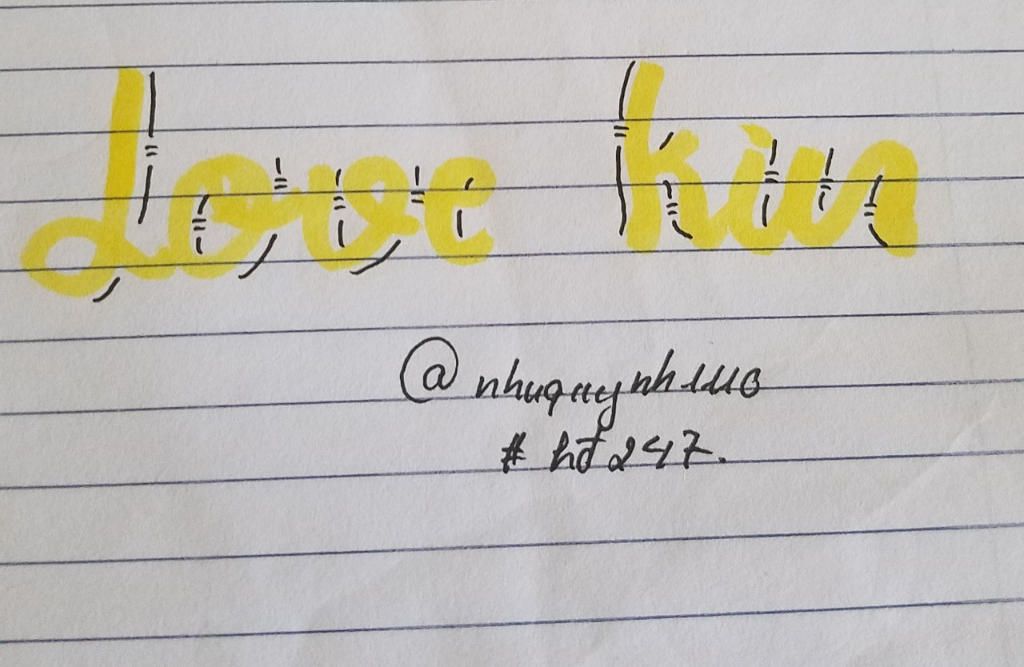 Love kim
@nhuquynh1110
#hđ247.